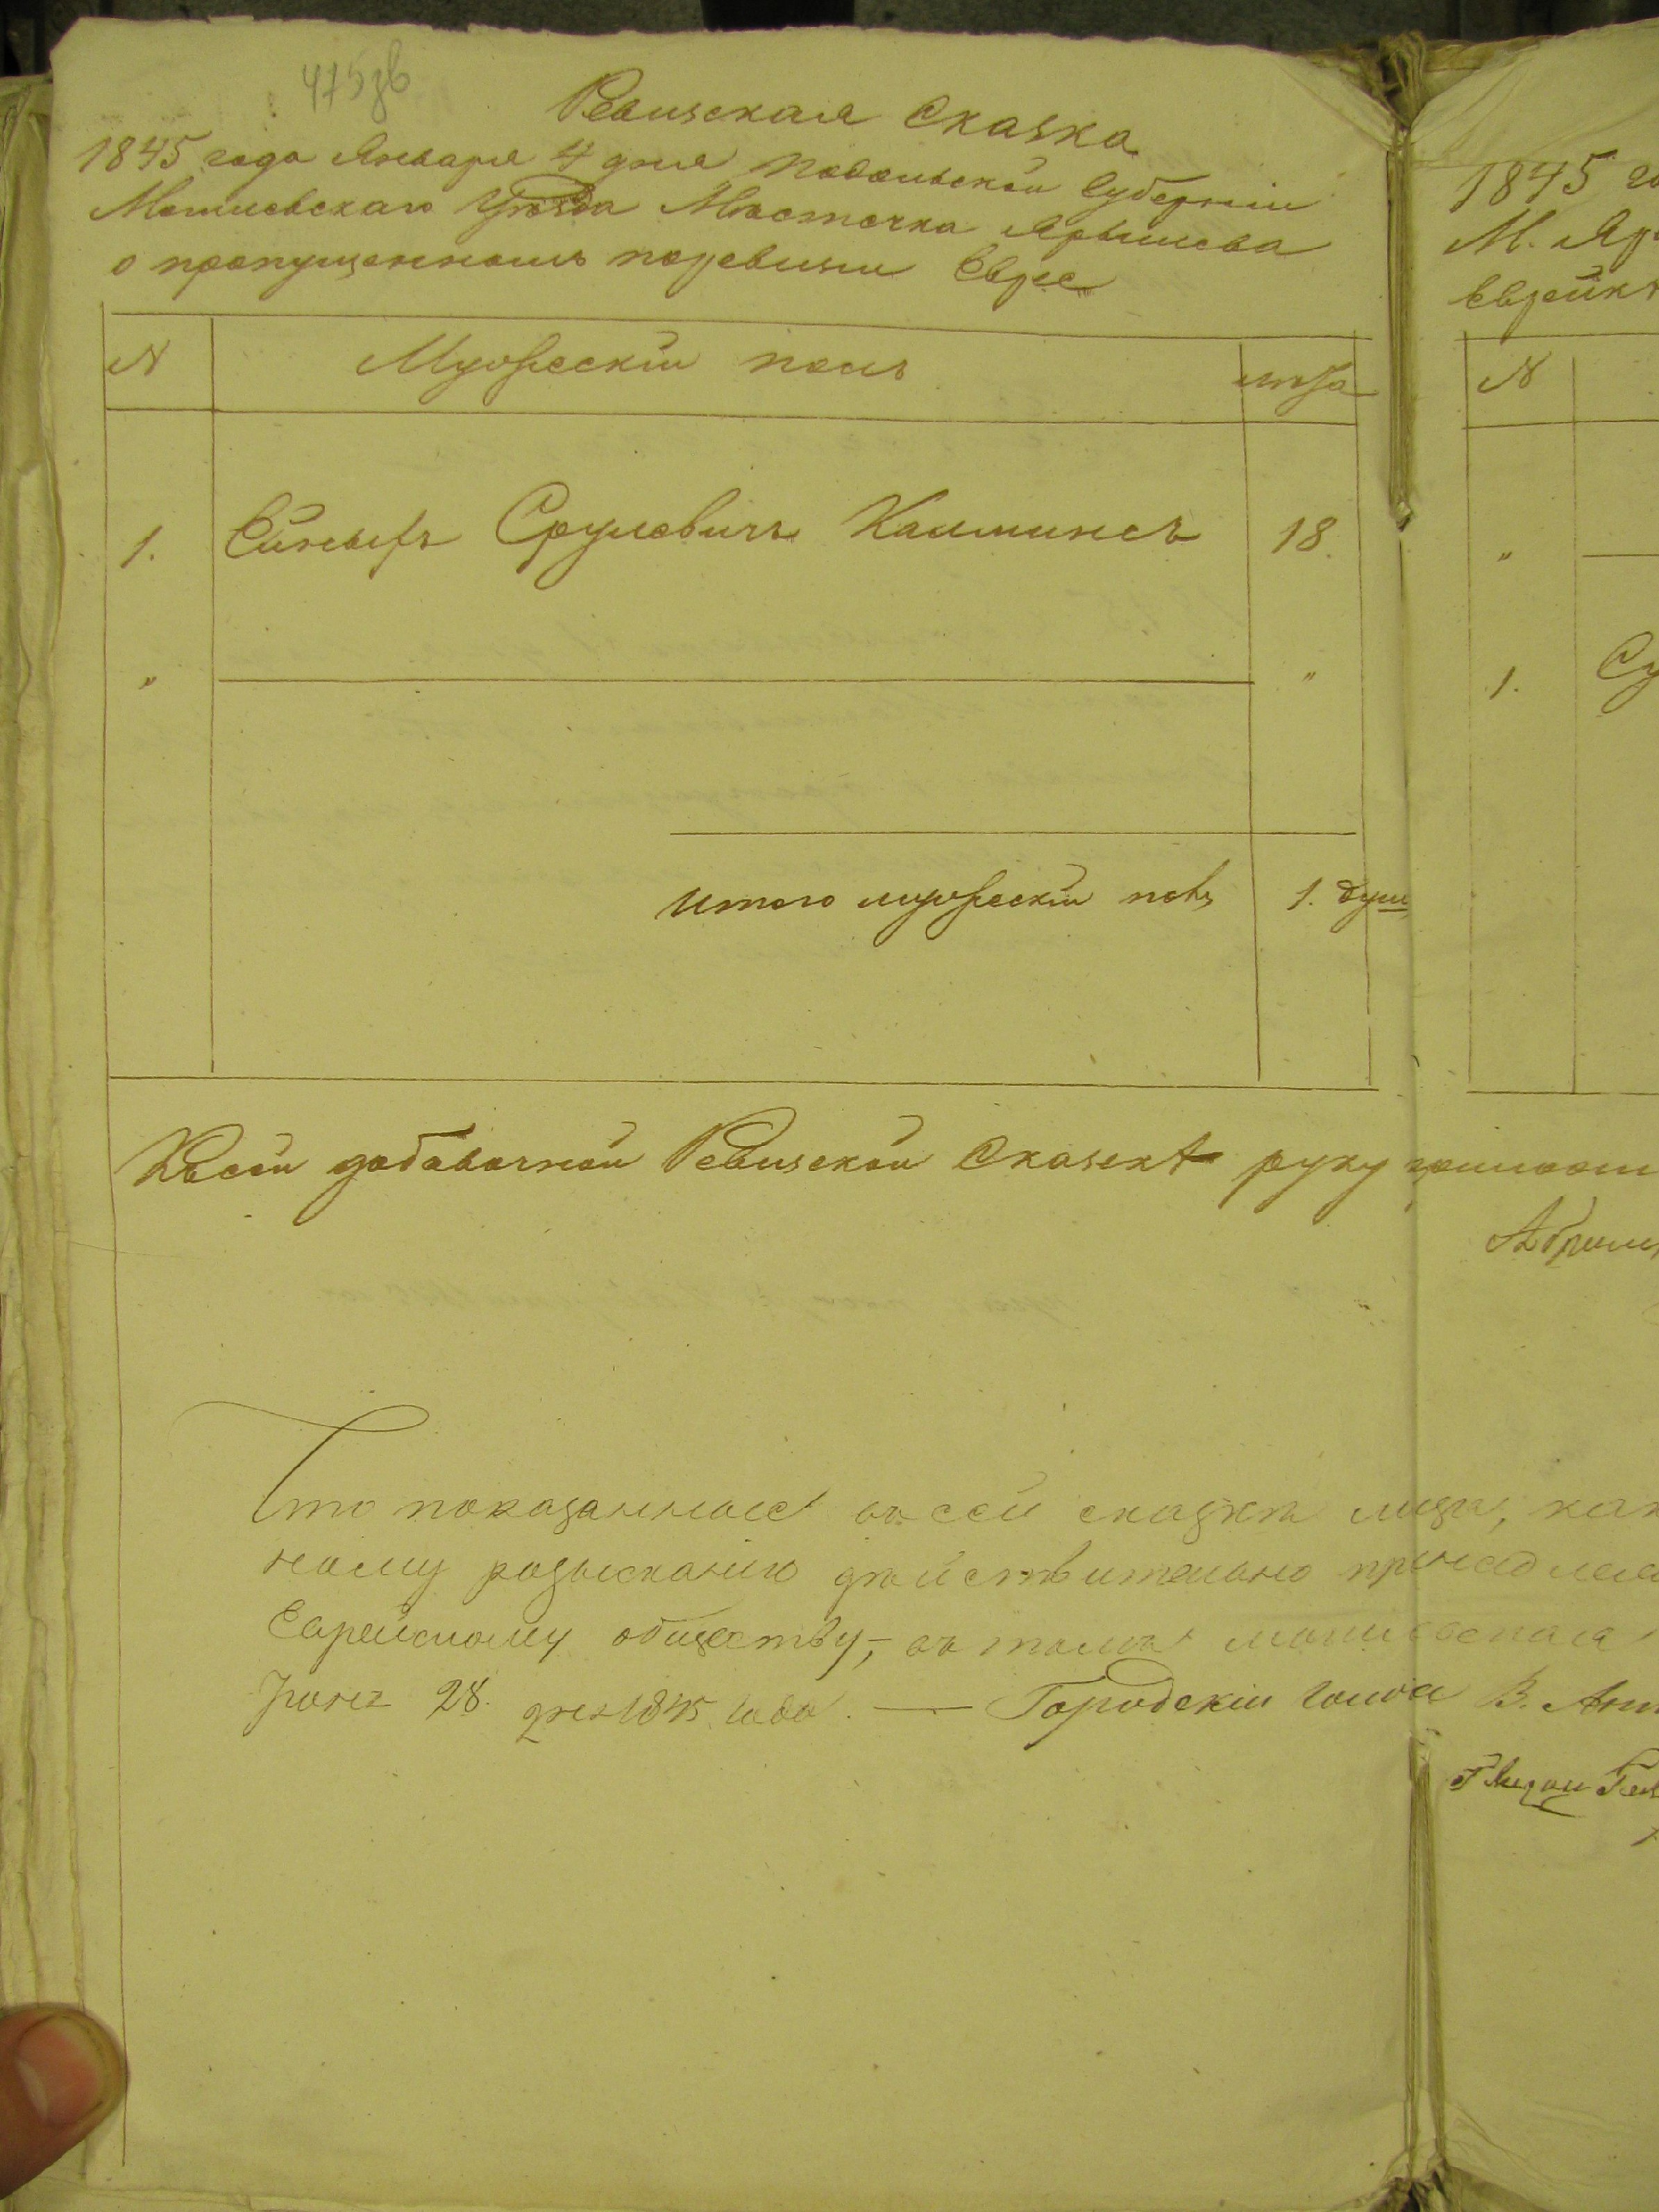 475 об
Ревизская Сказка
1845 года Января 4 дня Подольской Губерніи
Могилевскаго Уѣзда Мѣстечка Ярышева
о пропущенномъ поревизіи Еврее
N
Мужескій полъ
лѣта
1. Срулевичъ 18.
" "
Итого мужескій полъ 1. душ
Ксей добавочной Ревизской Сказкѣ руку
Что показанные въ сей сказкѣ лица, как
ному розысканію дѣйствительно принадлежа
Еврейскому обществу, – въ томъ
28. дня 1845 года. — Городскій Голова В.
1845 го
М. Яр
Еврейкѣ
N
"
1. Су